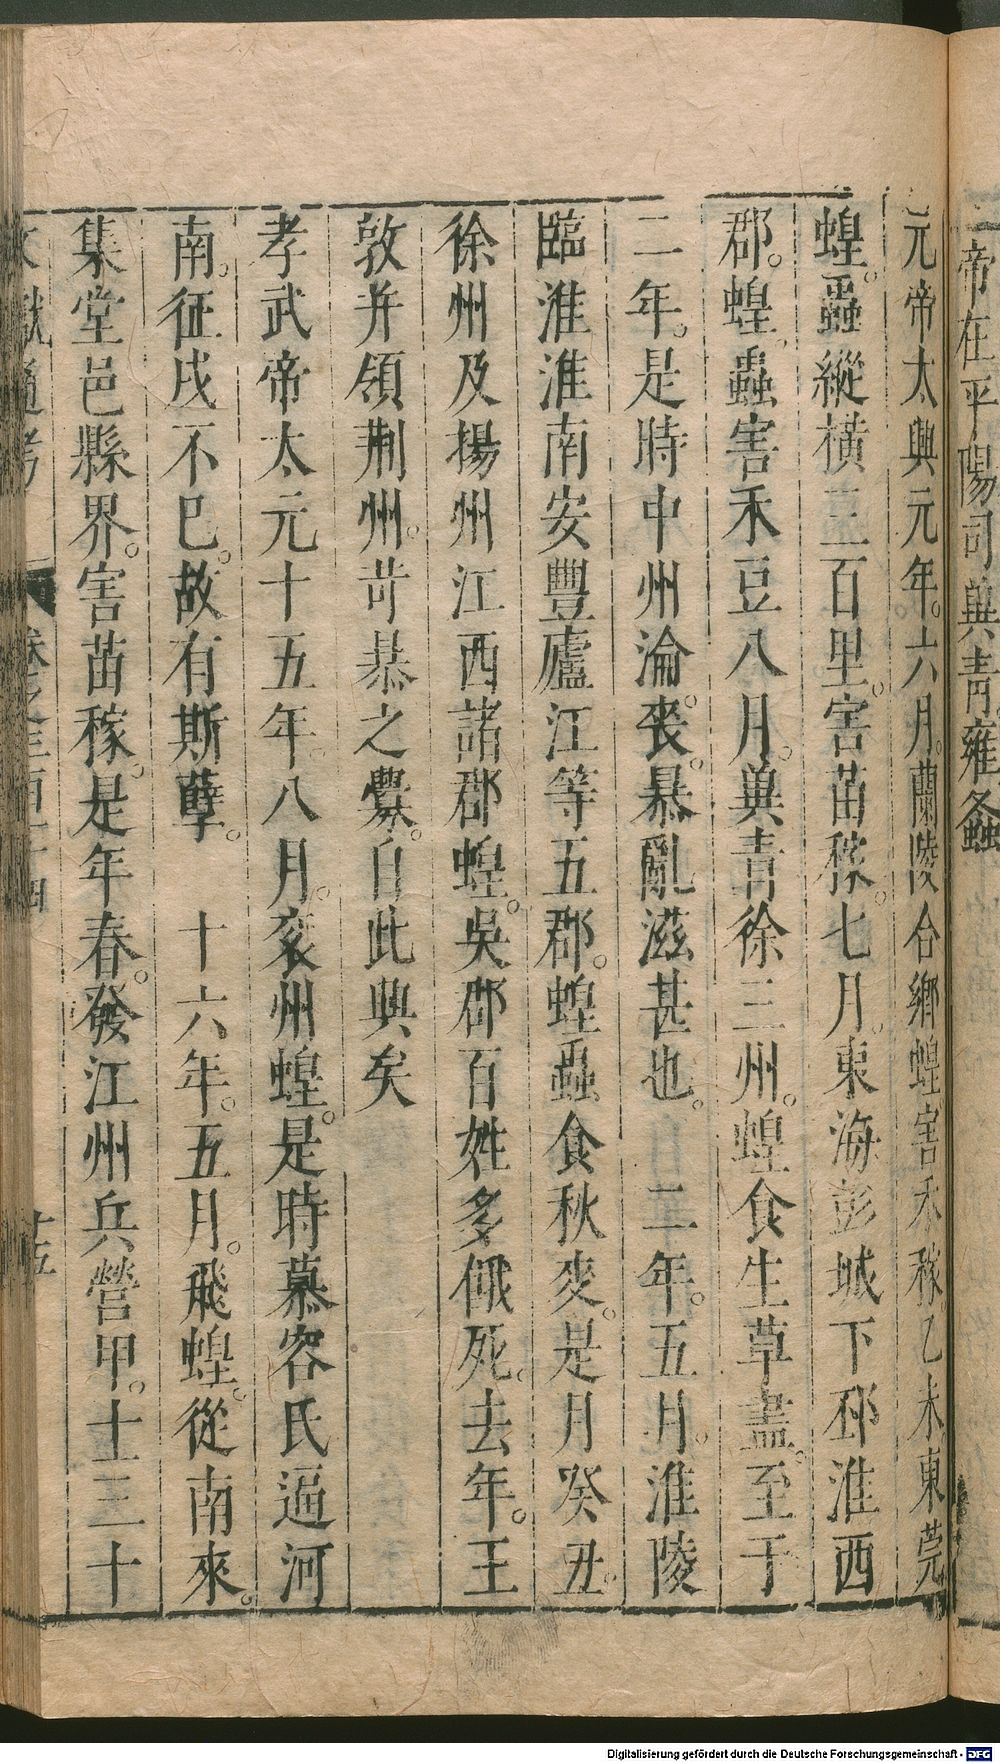 帝在平陽司冀青雍螽
元帝太興元年六月蘭陵合鄉蝗害禾稼乙未東莞
蝗蟲縱橫三百里害苗稼七月東海彭城下邳淮西
郡蝗蟲害禾豆八月冀青徐三州蝗食生草盡至于
二年是時中州淪喪暴亂滋甚也　二年五月淮陵
臨淮淮南安豐廬江等五郡蝗蟲食秋麥是月癸丑
徐州及揚州江西諸郡蝗吳郡百姓多餓死去年王
敦并領荆州苛暴之釁自此興矣
孝武帝太元十五年八月兖州蝗是時慕容氏逼河
南征戍不巳故有斯孽　十六年五月飛蝗從南來
集堂邑縣界害苗稼是年春發江州兵營甲士三十
文獻通考　卷之三百十四　十五
Digitalisierung gefördert durch die Deutsche Forschungsgemeinschaft - DFG